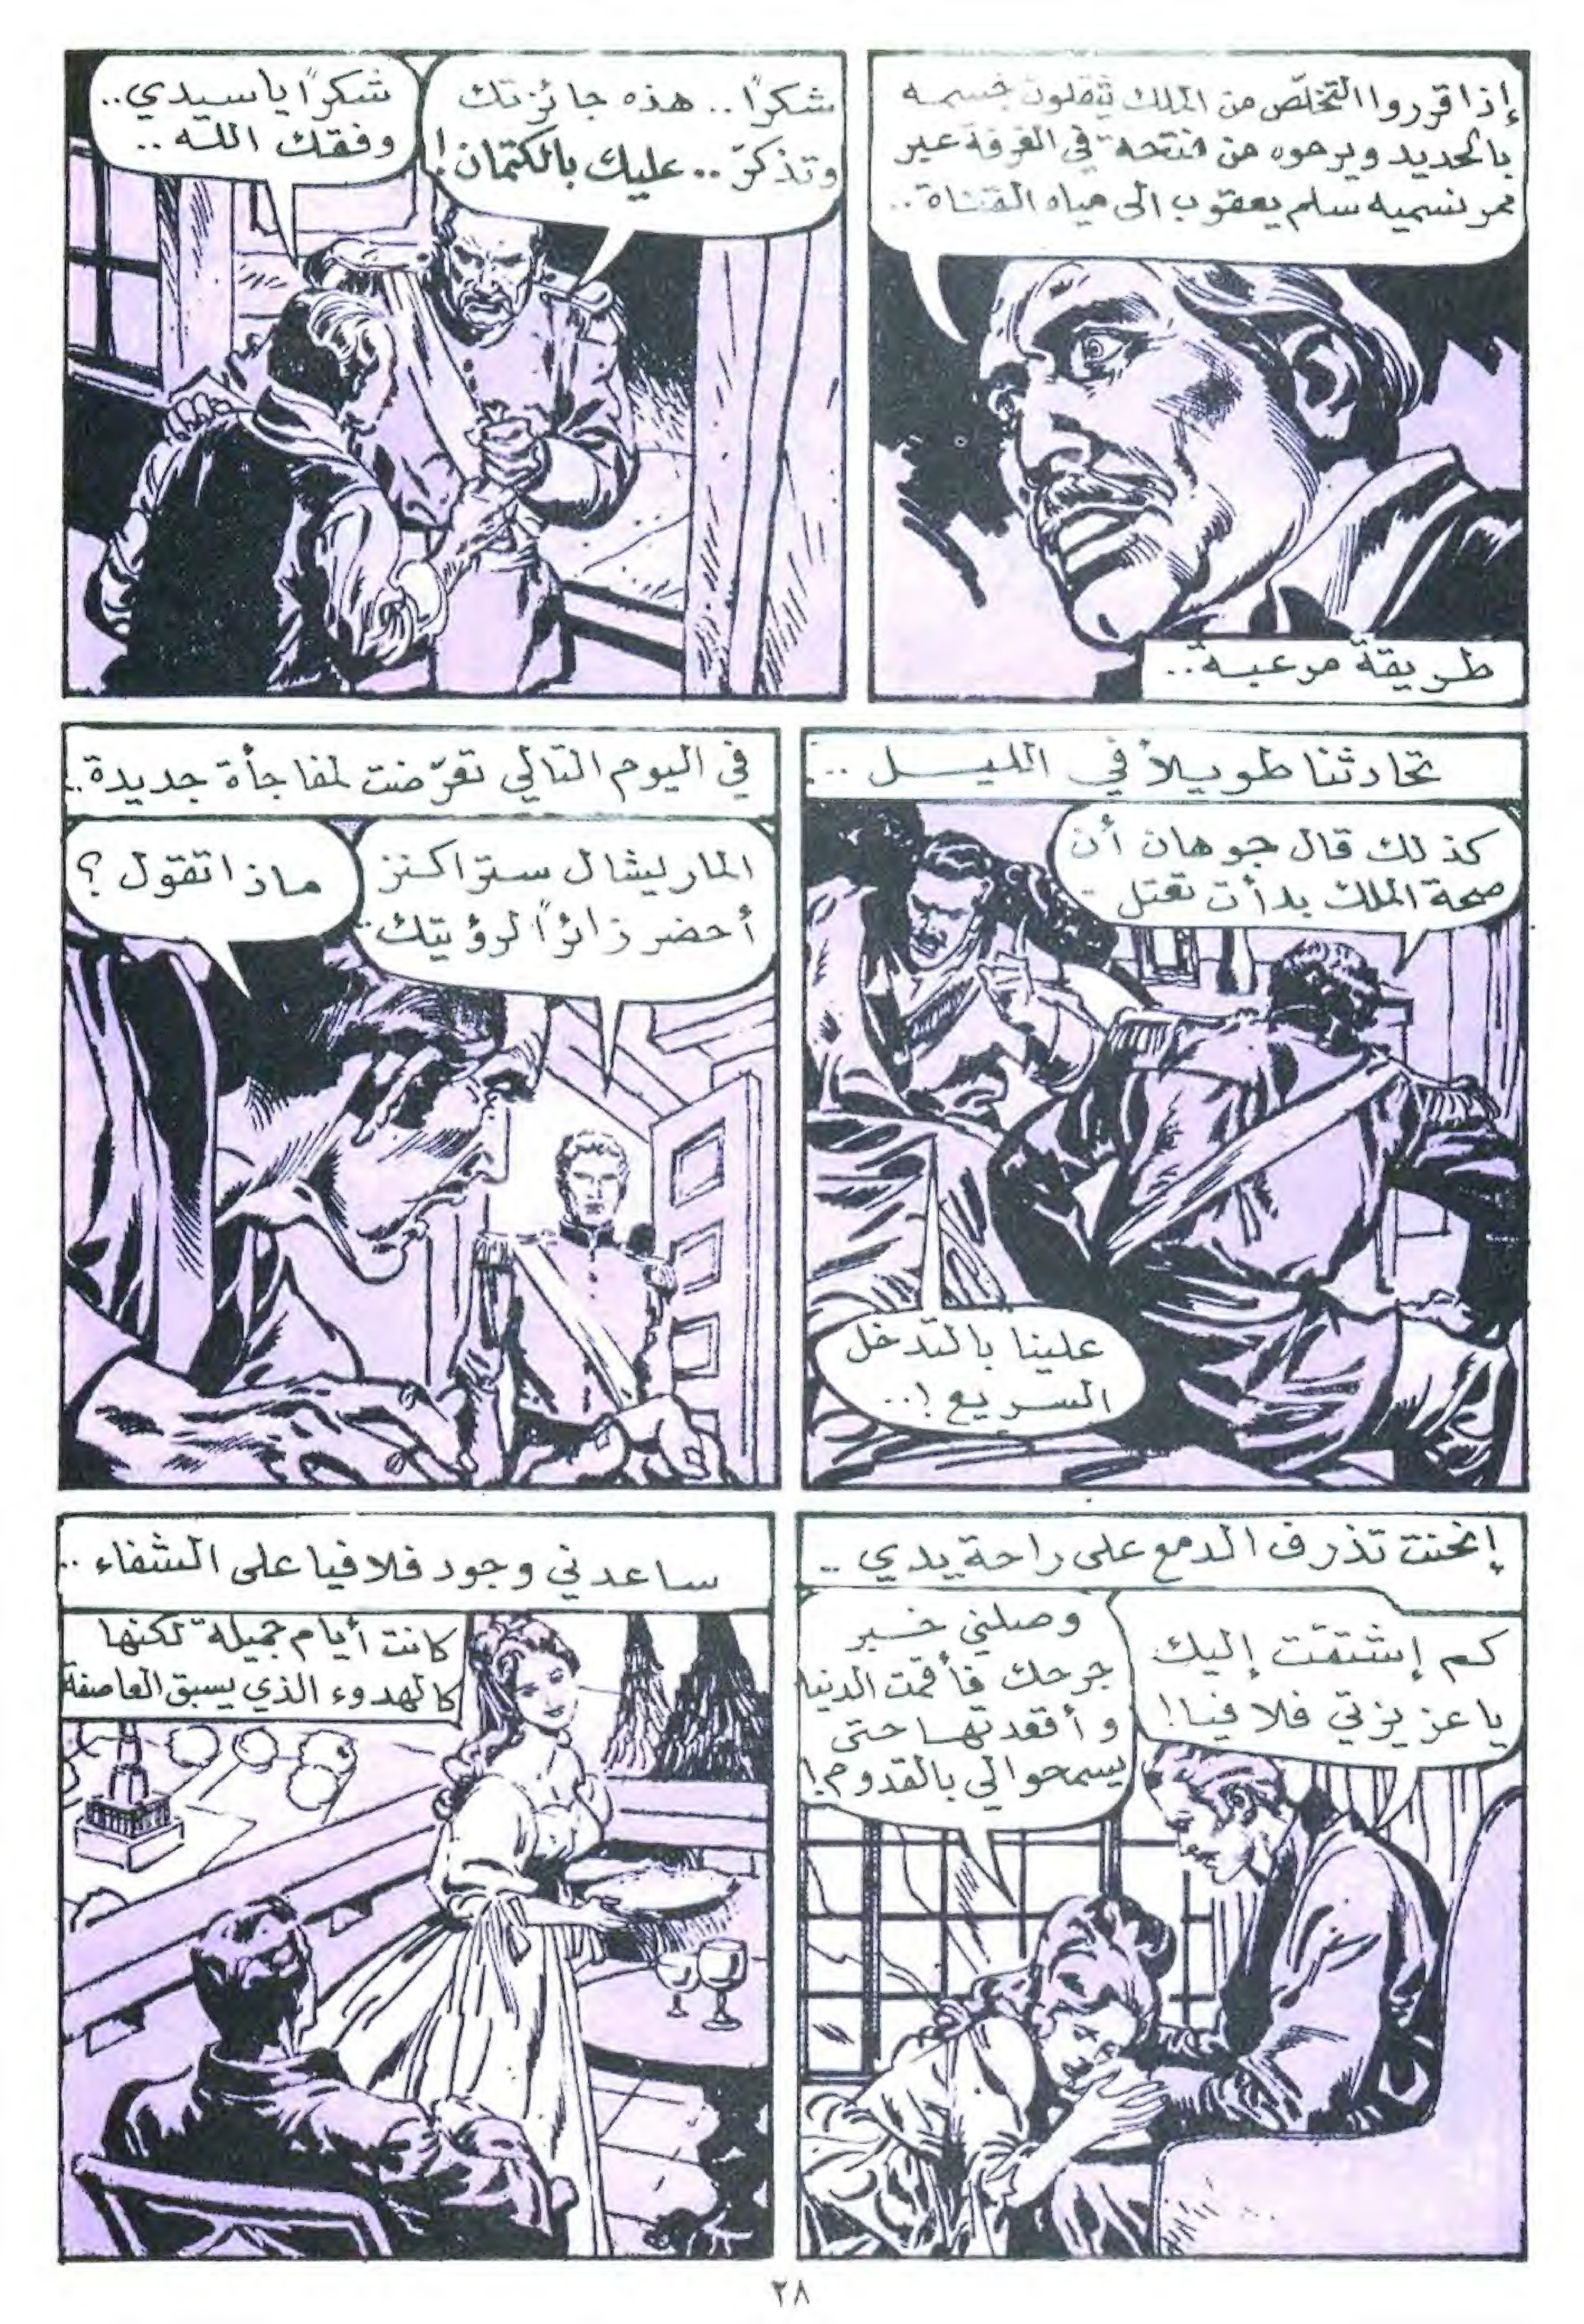 إذا قرروا التخلّص من الملك يثقلون جسمه
بالحديد ويرموه من فتحة في الغرفة عبر
ممر نسميه سلم يعقوب الى مياه القناة..
طريقة مرعبة..
شكرًا.. هذه جائزتك
وتذكّر.. عليك بالكتمان!
شكرًا يا سيدي..
وفقك الله..
تحادثنا طويلاً في الليل..
كذلك قال جوهان أن
صحة الملك بدأت تعتل
علينا بالتدخل
السريع!..
في اليوم التالي تعرّضت لمفاجأة جديدة..
الماريشال ستراكنز
أحضر زائرًا لرؤيتك..
ماذا تقول؟
إنحنت تذرف الدمع على راحة يدي..
كم إشتقت إليك
يا عزيزتي فلافيا!
وصلني خبر
جرحك فأقمت الدنيا
و أقعدتها حتى
يسمحوا لي بالقدوم!
ساعدني وجود فلافيا على الشفاء..
كانت أيام جميلة لكنها
كالهدوء الذي يسبق العاصفة
٢٨